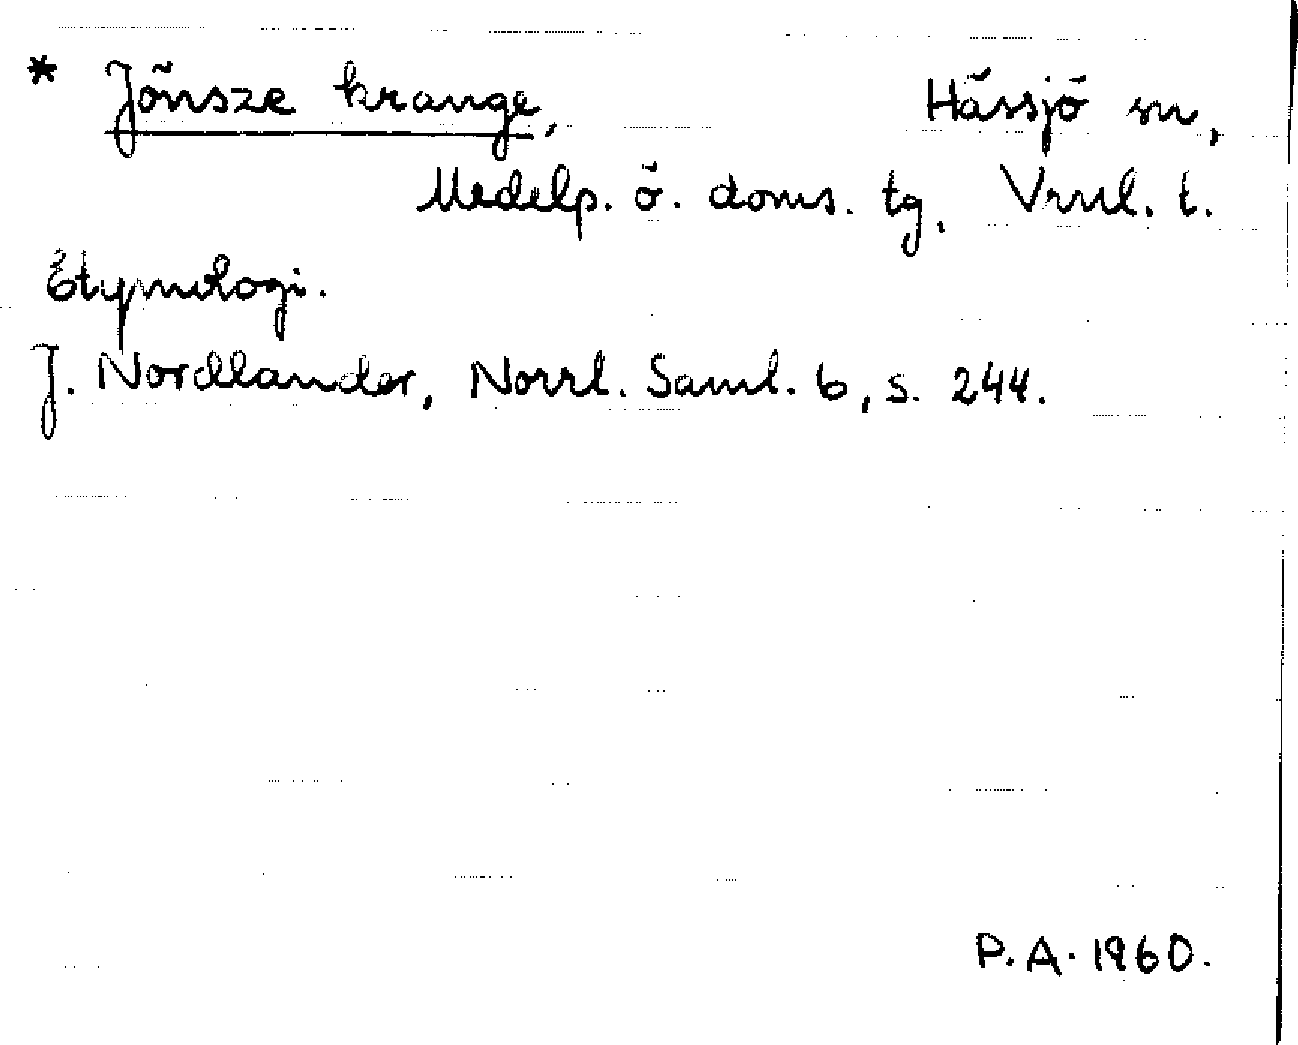 * Jönsze krange, Hässjö sn,
Medelp. ö. doms. tg, Vrnl. t.
Etymologi.
J. Nordlander, Norrl. Saml. 6, s. 244.
P.A. 1960.